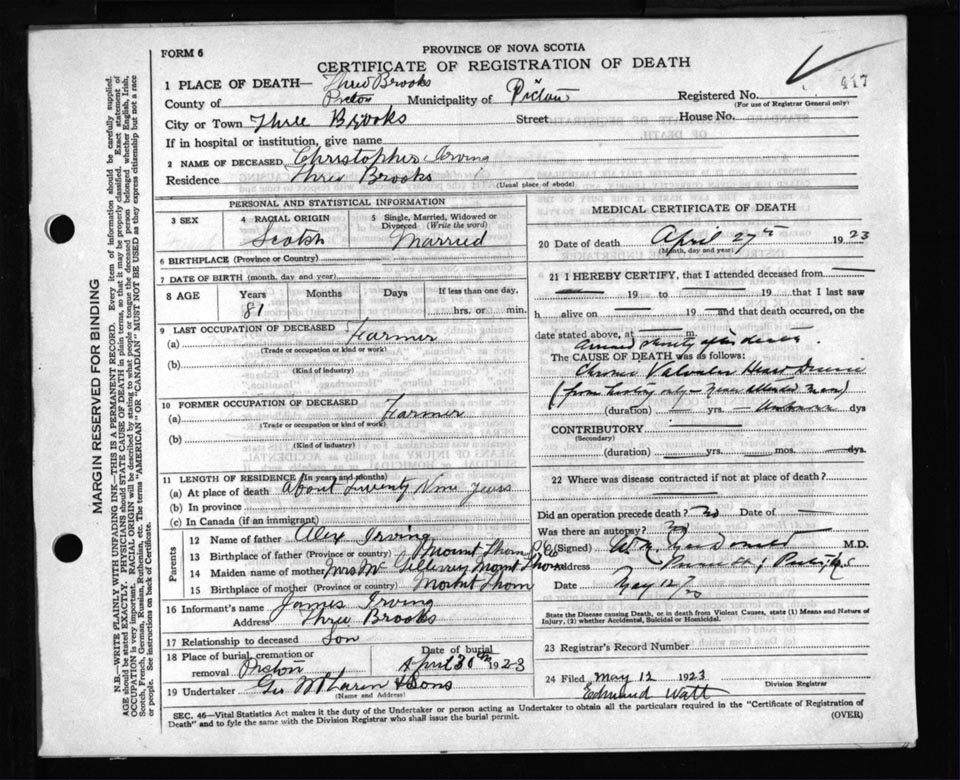 FORM 6
PROVINCE OF NOVA SCOTIA
CERTIFICATE OF REGISTRATION OF DEATH
417
1 PLACE OF DEATH— Three Brooks
County of Pictou Municipality of Pictou Registered No.
(For use of Registrar General only)
City or Town Three Brooks Street House No.
If in hospital or institution, give name
2 NAME OF DECEASED Christopher Irving
Residence Three Brooks
(Usual place of abode)
PERSONAL AND STATISTICAL INFORMATION
3 SEX 4 RACIAL ORIGIN Scotch 5 Single, Married, Widowed or Divorced (Write the word) Married
6 BIRTHPLACE (Province or Country)
7 DATE OF BIRTH (month, day and year)
8 AGE Years 81 Months Days If less than one day, hrs. or min.
9 LAST OCCUPATION OF DECEASED
(a) Farmer
(Trade or occupation or kind of work)
(b)
(Kind of industry)
10 FORMER OCCUPATION OF DECEASED
(a) Farmer
(Trade or occupation or kind of work)
(b)
(Kind of industry)
11 LENGTH OF RESIDENCE (in years and months)
(a) At place of death About Twenty Nine Years
(b) In province
(c) In Canada (if an immigrant)
Parents
12 Name of father Alex Irving
13 Birthplace of father (Province or country) Mount Thom
14 Maiden name of mother Mrs Mc Mount Thom
15 Birthplace of mother (Province or country) Mount Thom
16 Informant's name James Irving
Address Three Brooks
17 Relationship to deceased Son
18 Place of burial, cremation or removal Pictou Date of burial April 30th 1923
19 Undertaker Geo McLaren & Sons
(Name and Address)
MEDICAL CERTIFICATE OF DEATH
20 Date of death April 27th 1923
(Month, day and year)
21 I HEREBY CERTIFY, that I attended deceased from
19 to 19 that I last saw
h alive on 19 and that death occurred, on the
date stated above, at m.
Arrived shortly after death.
The CAUSE OF DEATH was as follows:
Chronic Valvular Heart Disease
(from history only – never attended man)
(duration) yrs. Unknown dys
CONTRIBUTORY
(Secondary)
(duration) yrs. mos. dys.
22 Where was disease contracted if not at place of death?
Did an operation precede death? No Date of
Was there an autopsy? No
(Signed) M.D.
Address
Date May 12
State the Disease causing Death, or in death from Violent Causes, state (1) Means and Nature of
Injury, (2) whether Accidental, Suicidal or Homicidal.
23 Registrar's Record Number
24 Filed May 12 1923
Edmund Watt
Division Registrar
SEC. 46—Vital Statistics Act makes it the duty of the Undertaker or person acting as Undertaker to obtain all the particulars required in the "Certificate of Registration of
Death" and to fyle the same with the Division Registrar who shall issue the burial permit.
(OVER)
MARGIN RESERVED FOR BINDING
N.B.—WRITE PLAINLY WITH UNFADING INK—THIS IS A PERMANENT RECORD. Every item of information should be carefully supplied.
AGE should be stated EXACTLY. PHYSICIANS should STATE CAUSE OF DEATH in plain terms, so that it may be properly classified. Exact statement of
OCCUPATION is very important. RACIAL ORIGIN will be described by stating to what people or tongue the deceased person belonged whether English, Irish,
Scotch, French, German, Russian, Ruthenian, etc. The terms "AMERICAN" OR "CANADIAN" MUST NOT BE USED as they express citizenship but not a race
or people. See instructions on back of Certificate.